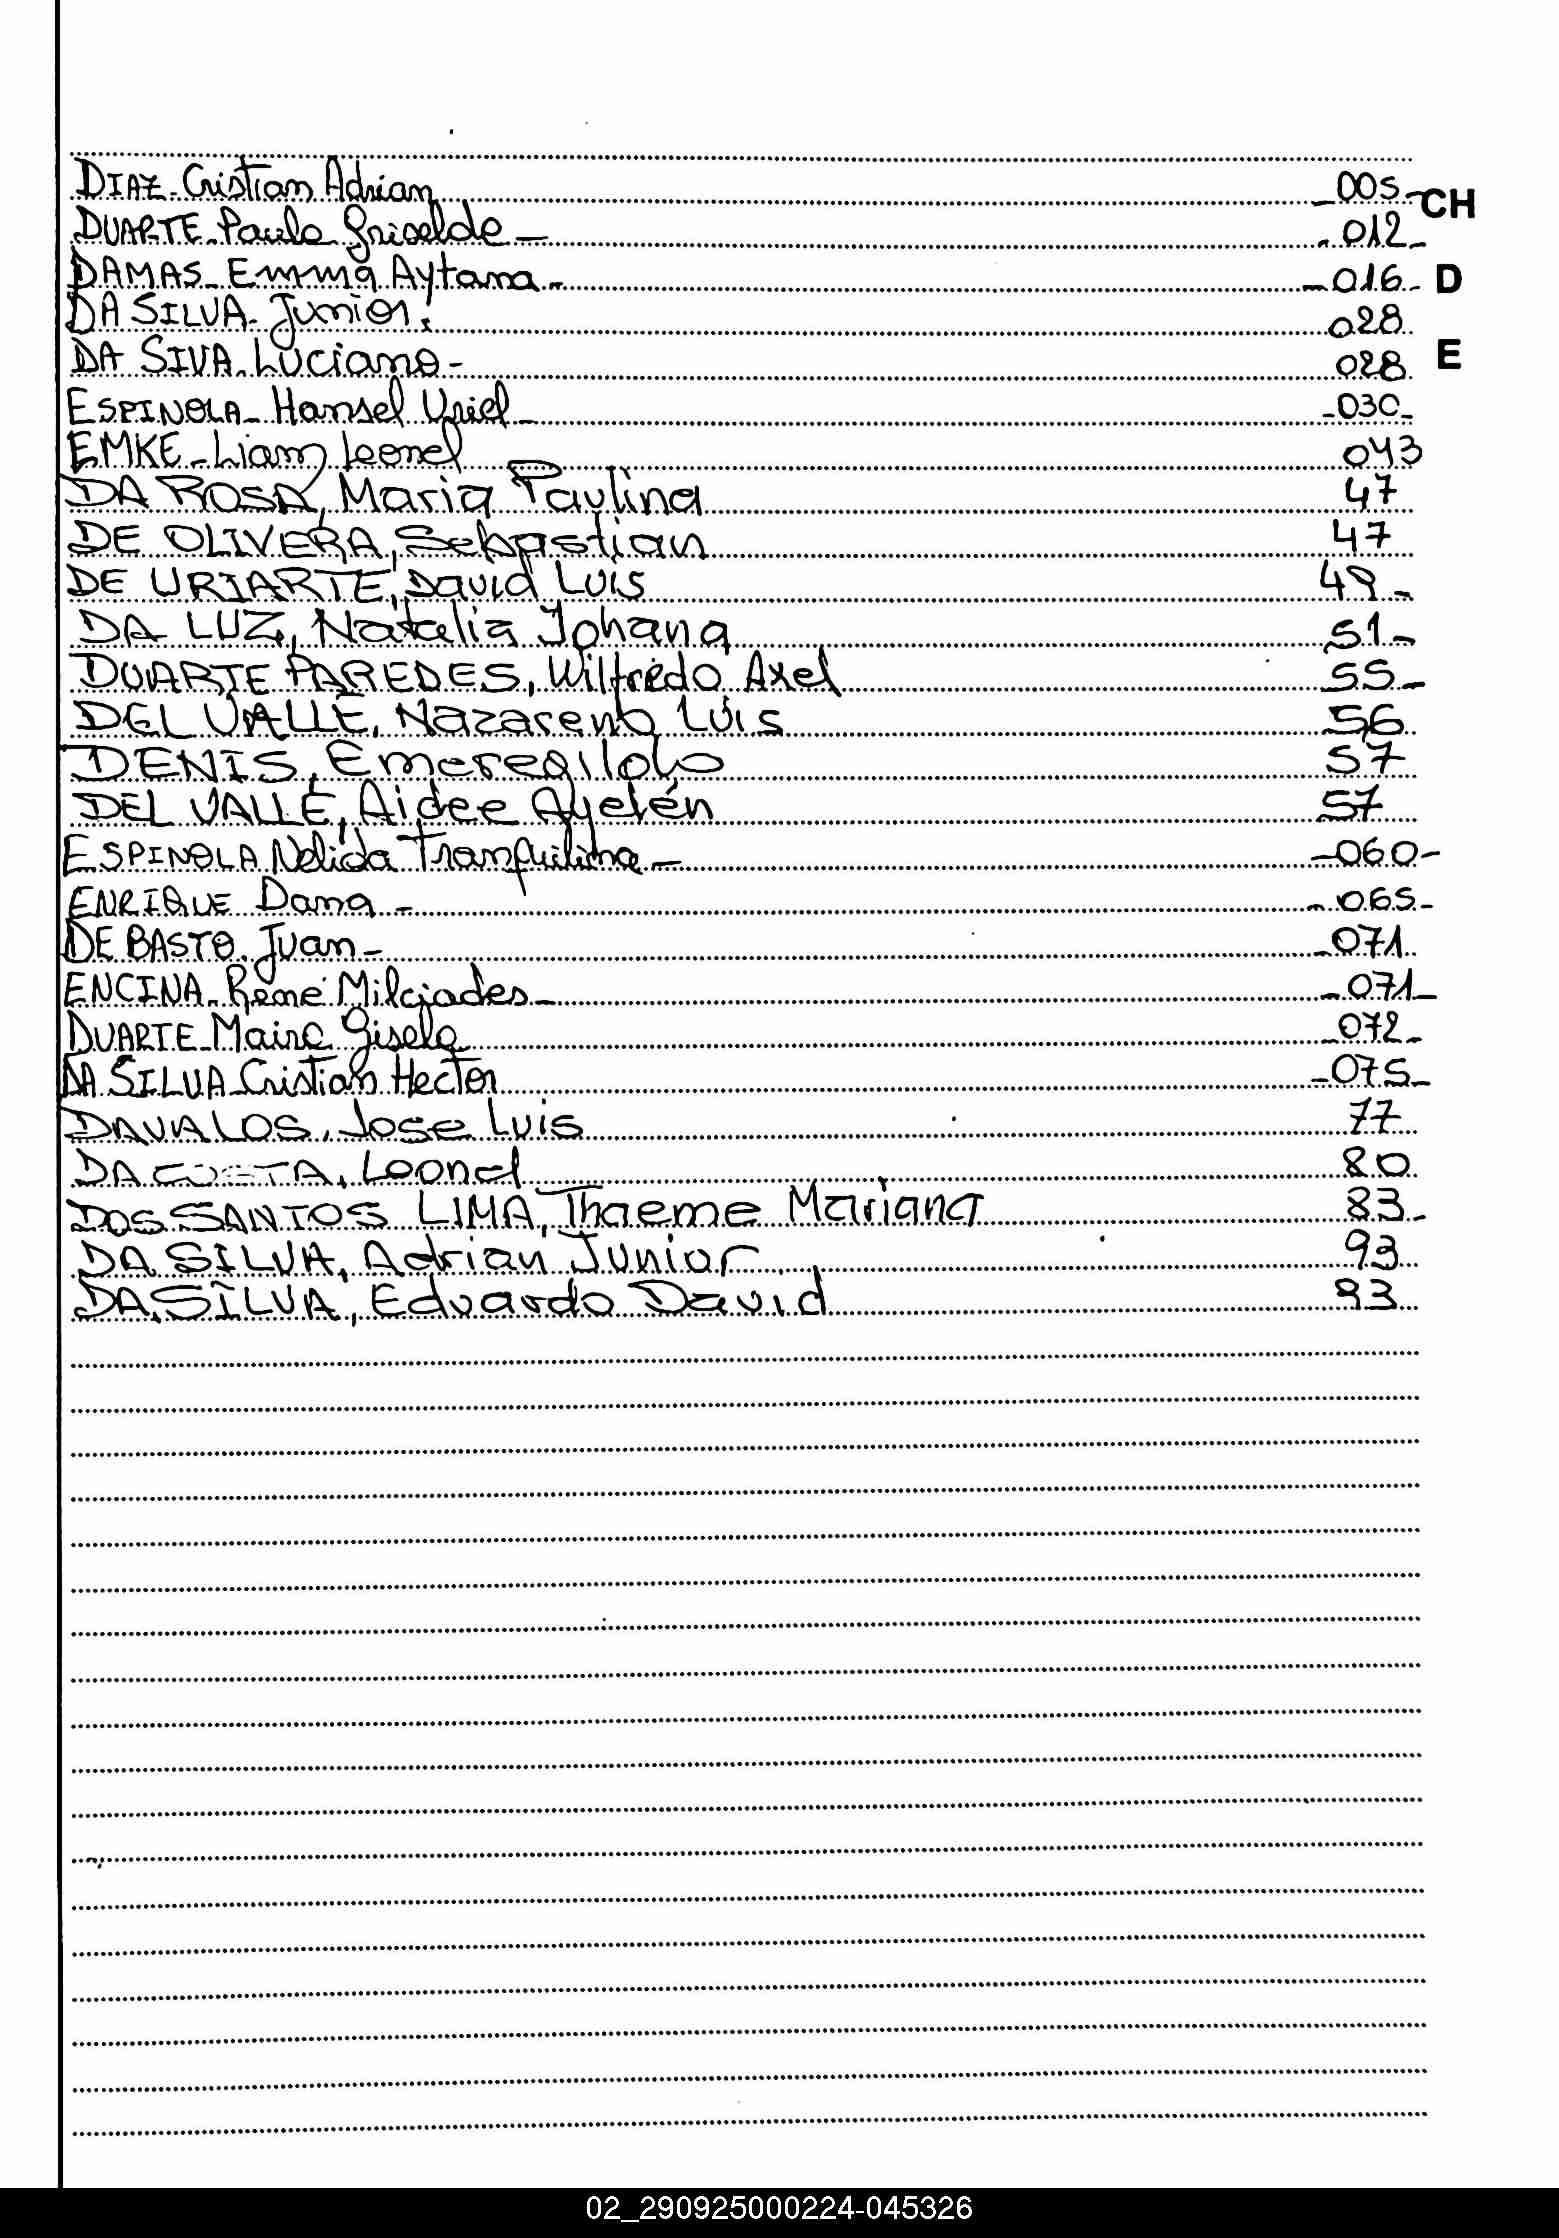 DIAZ - Cristiam Adrian - 005 - CH
DUARTE - Paula Griselda - 012 -
DAMAS - Emma Aytana - 016 - D
DA SILVA - Junior. 028
DA SIVA. Luciano - 028 E
ESPINOLA - Hansel Uriel - 030 -
EMKE - Liam Leonel 043
DA ROSA, Maria Paulina 47
DE OLIVERA, Sebastian 47
DE URIARTE, David Luis 49 -
DA LUZ, Natalia Johana 51 -
DUARTE PAREDES, Wilfredo Axel 55 -
DEL VALLE, Nazareno Luis 56
DENIS, 57
DEL VALLE, Aidee Ayelén 57
ESPINOLA Nelida Tranquilina - 060 -
ENRIQUE Dana - 065 -
DE BASTO. Juan - 071
ENCINA - Rene Milciades - 071 -
DUARTE - Gisela - 072 -
DA SILVA - Cristian Hector - 075 -
DAVALOS, Jose Luis 77
DA COSTA, Leonel 80
DOS SANTOS LIMA, Thaeme Mariana 83 -
DA SILVA, Adrian Junior 93
DA SILVA, Eduardo David 93
02_290925000224-045326